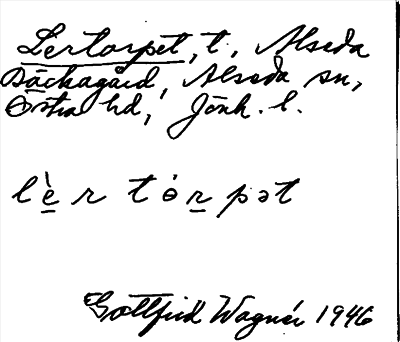 Lertorpet, t., Alseda
Bäckagård, Alseda sn,
Östra hd, Jönk. l.
lè̠r tór̠pət
Gottfrid Wagnér 1946